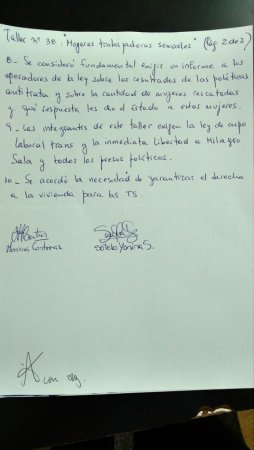 Taller nº 38 "Mujeres trabajadoras sexuales" (Pág. 2 de 2)
8 - Se consideró fundamental exigir un informe a los
operadores de la ley sobre los resultados de las políticas
antitrata y sobre la cantidad de mujeres rescatadas
y qué respuesta les dio el estado a estas mujeres.
9 - Las integrantes de este taller exigen la ley de cupo
laboral trans y la inmediata libertad a Milagro
Sala y todos los presos políticos.
10 - Se acordó la necesidad de garantizar el derecho
a la vivienda para las TS.
Contreras
Sotelo Yanina S.
con